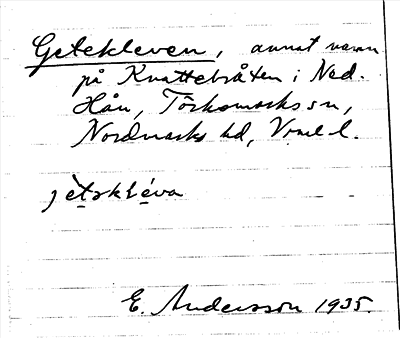 Getekleven, annat namn
på Knattebråten i Ned.
Hån, Töcksmarks sn,
Nordmarks hd, Vrml.
jètəkléva
E. Andersson 1935.